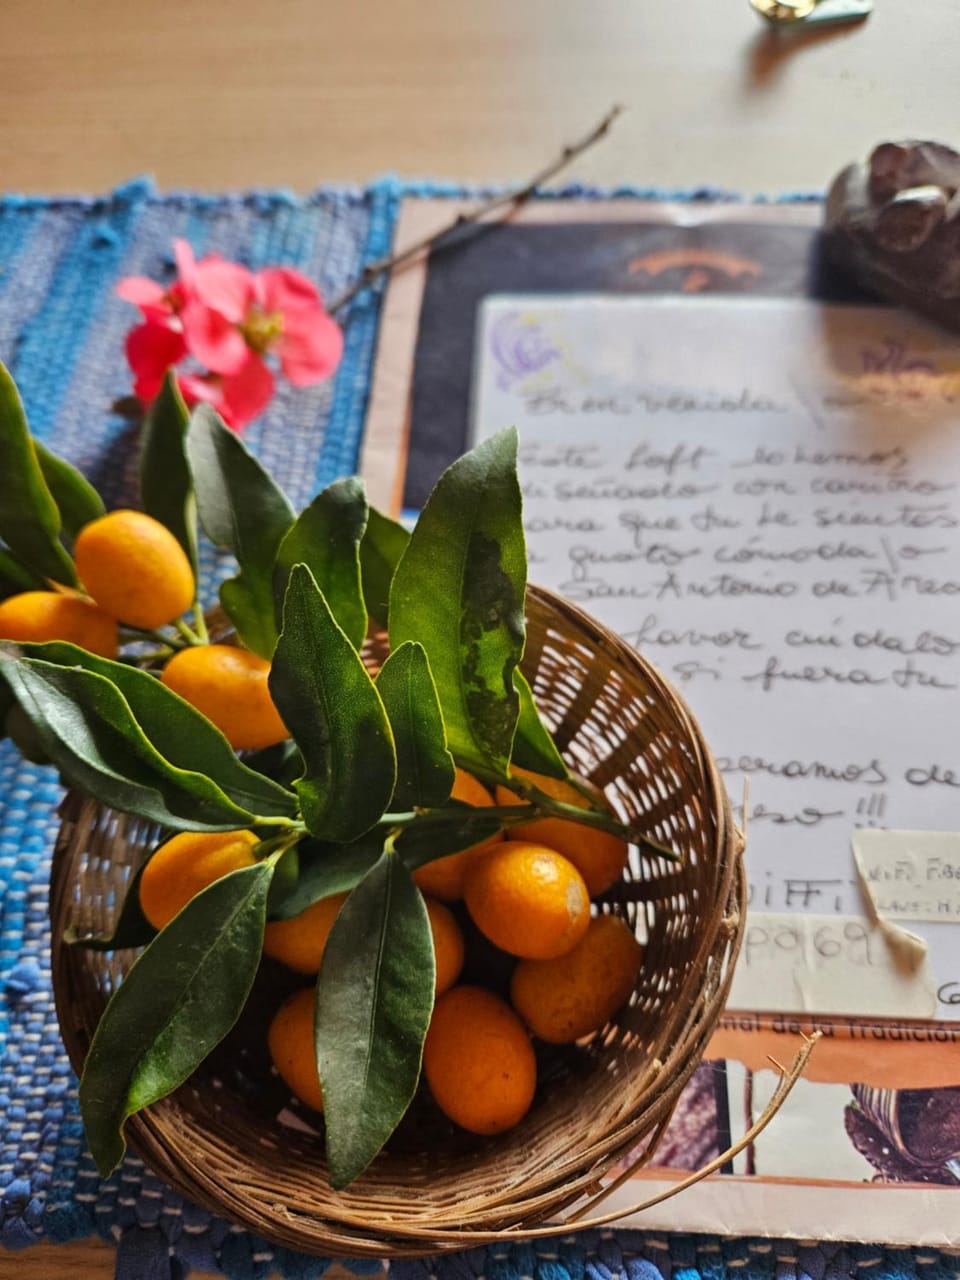 Bienvenida /
Este Loft lo hemos
diseñado con cariño
para que tu te sientas
a gusto cómoda/o
San Antonio de Areco
favor cuídalo
si fuera tu
peramos de
eso !!!
WIFI FIBE
CLAVE: H
WIFI
0069
nal de la Tradición